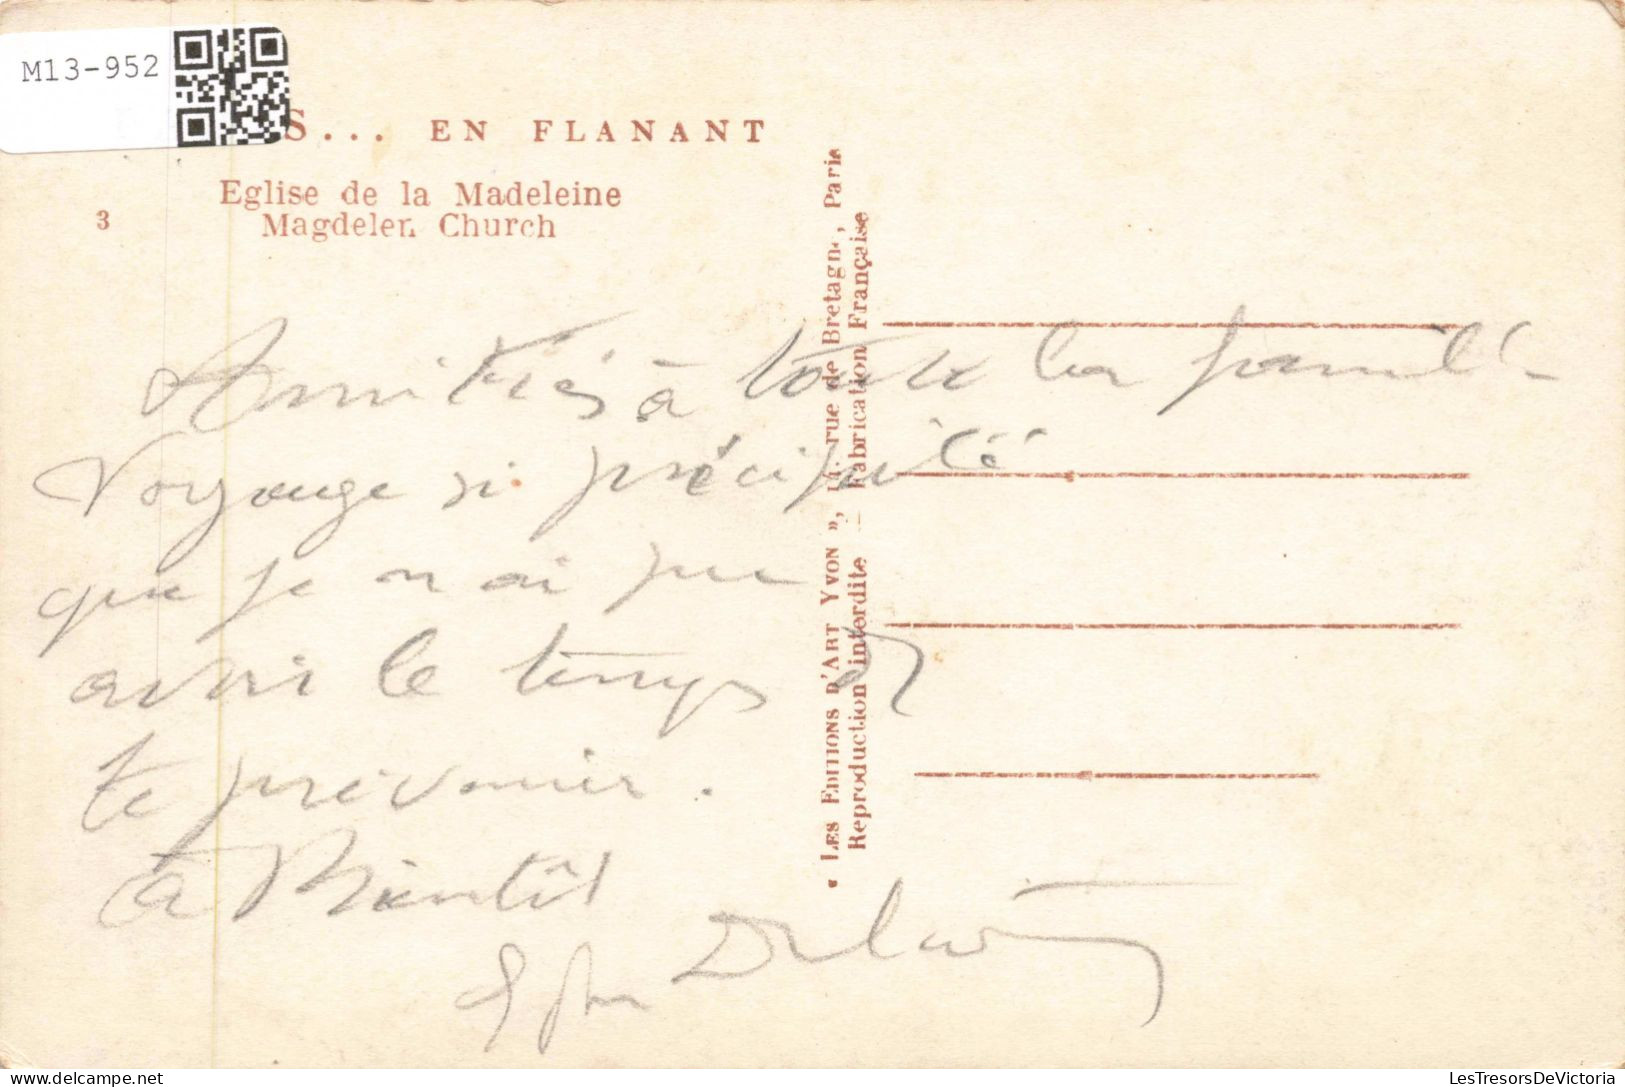 M13-952
S... EN FLANANT
Eglise de la Madeleine
3 Magdelen Church
Amitiés à toute la famille
Voyage si précipité
que je n ai pu
avoir le temps de
te prévenir.
à Bientôt
• LES EDITIONS D'ART YVON », rue de Bretagne, Paris
Reproduction interdite — Fabrication Française
delcampe.net
LesTresorsDeVictoria